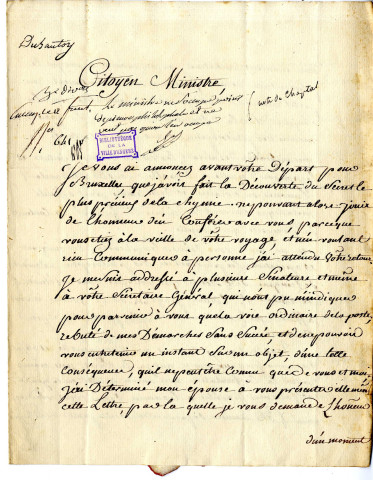 Citoyen Ministre
le ministre ne s'occupe point
de
note de Chaptal
BIBLIOTHEQUE
DE LA
VILLE D'ANGERS
Je vous ai annoncé avant votre Départ pour
Bruxelles, que j'avois fait la Découverte du Secret le
plus prétieux de la chymie. ne pouvant alors jouir
de l'honneur d'en Conférer avec vous parceque
vous etiez à la veille de vôtre voyage et n'en voulant
rien Communiquer à personne j'ai attendu votre retour.
Je me suis addressé à plusieurs Senateurs et même
à vôtre Sécrétaire Général, qui n'ont pu m'indiquer
pour parvenir à vous que la voie ordinaire de la poste,
rebuté de mes Démarches Sans Succès, et de ne pouvoir
vous entretenir un instant Sur un objet, d'une telle
Conséquence, qui ne peut être Connu que de vous et moi,
j'ai Déterminé mon épouse à vous présenter elle même
cette Lettre, par la quelle je vous demande L'honneur
d'un moment